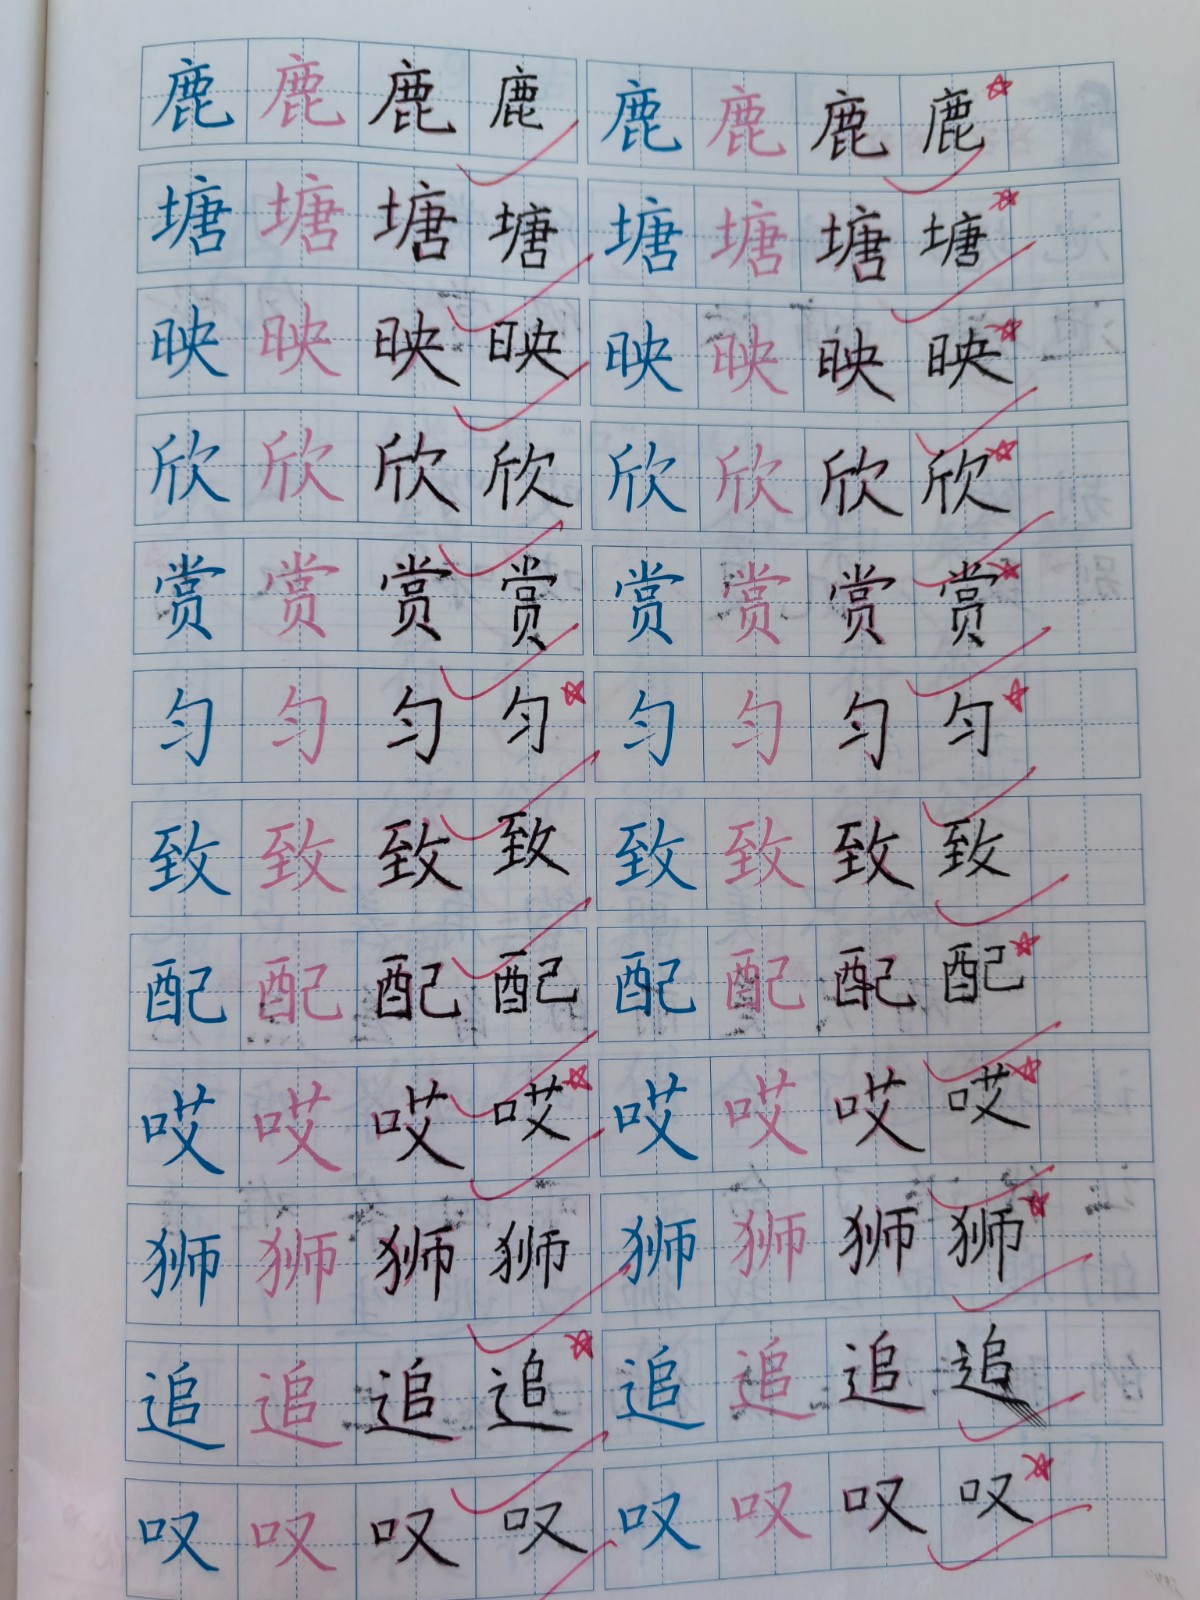 鹿鹿鹿鹿鹿鹿鹿鹿
塘塘塘塘塘塘塘塘
映映映映映映映映
欣欣欣欣欣欣欣欣
赏赏赏赏赏赏赏赏
匀匀匀匀匀匀匀匀
致致致致致致致致
配配配配配配配配
哎哎哎哎哎哎哎哎
狮狮狮狮狮狮狮狮
追追追追追追追追
叹叹叹叹叹叹叹叹